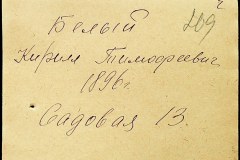 Белый 209
Кирилл Тимофеевич
1896 г.
Садовая 13.